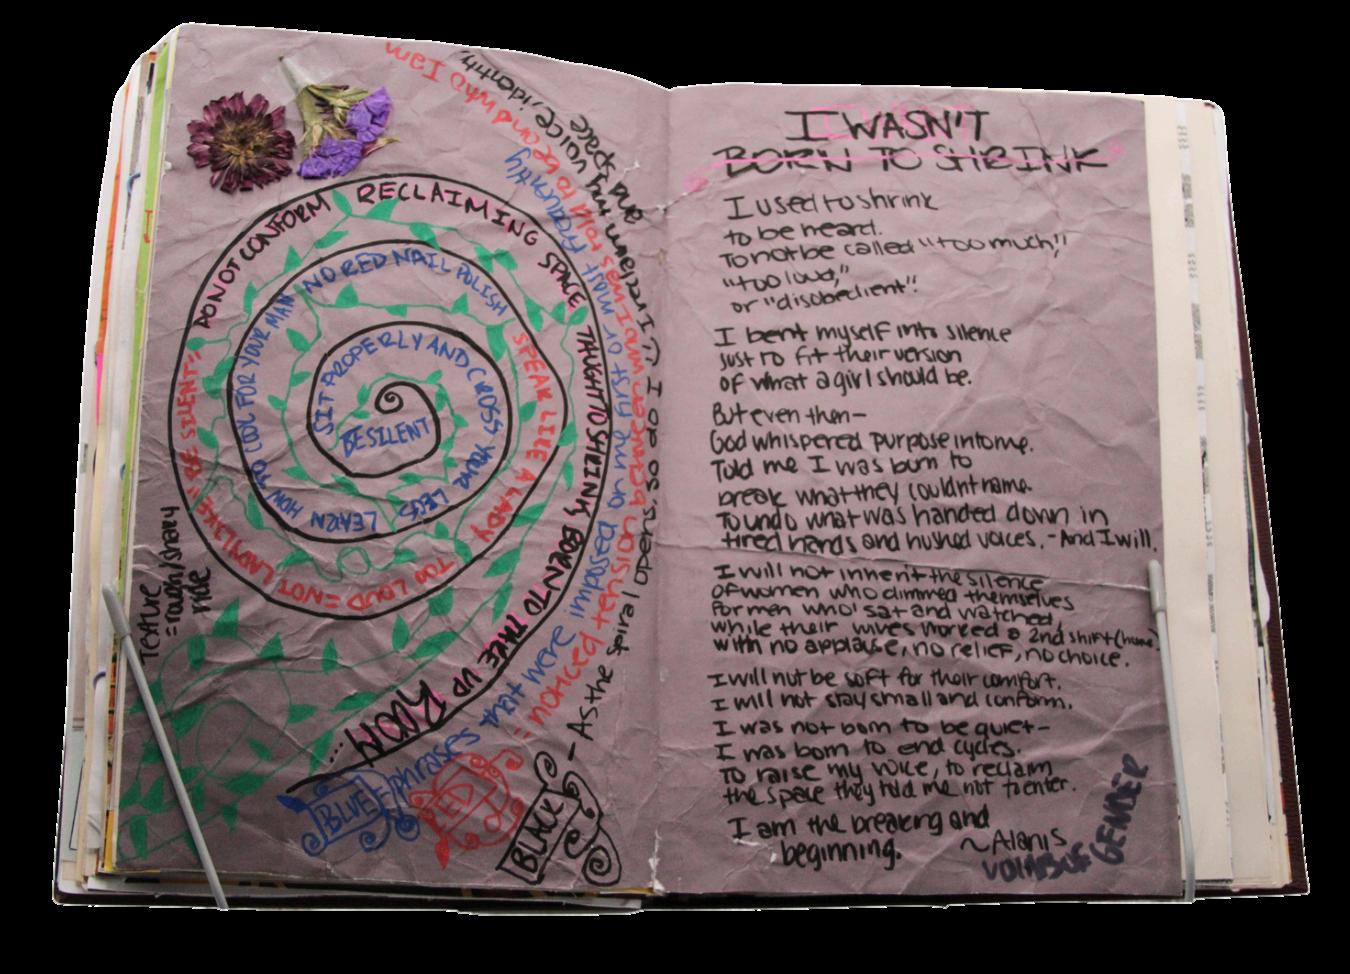 BE SILENT
SIT PROPERLY AND CROSS YOUR LEGS
LEARN HOW TO COOL FOR YOUR MAN
NO RED NAIL POLISH
SPEAK LIKE A LADY
TOO LOUD = NOT LADYLIKE "BE SILENT"
DO NOT CONFORM RECLAIMING SPACE TAUGHT TO SHRINK, BORN TO TAKE UP ROOM...
TEXTURE
= rough/shaky
BLUE = phrases that were imposed on my first or most frequently
RED = noticed tension between who I was told to be and who I am
BLACK - As the spiral opens, so do I. I reclaim my voice, identity,
and space
I WASN'T
BORN TO SHRINK
I used to shrink
to be heard.
To not be called "too much,"
"too loud,"
or "disobedient".
I bent myself into silence
just to fit their version
of what a girl should be.
But even then—
God whispered purpose into me.
Told me I was born to
break what they couldn't name.
To undo what was handed down in
tired hands and hushed voices. - And I will.
I will not inherit the silence
of women who dimmed themselves
for men who sat and watched,
while their wives worked a 2nd shift (home)
with no applause, no relief, no choice.
I will not be soft for their comfort.
I will not stay small and conform.
I was not born to be quiet—
I was born to end cycles.
To raise my voice, to reclaim
the space they told me not to enter.
I am the breaking and
beginning.
~Alanis
GENDER